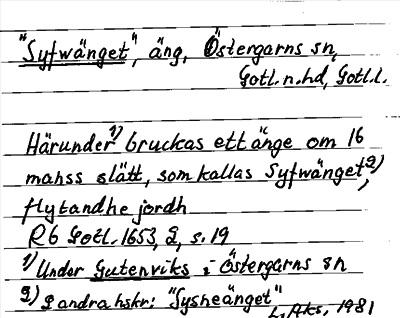 "Syfwänget", äng, Östergarns sn,
Gotl. n. hd, Gotl. l.
Härunder 1) bruckas ett änge om 16
manss slätt, som kallas Syfwänget 2),
flytandhe jordh
R6 Gotl. 1653, 2, s. 19
1) Under Gutenviks i Östergarns sn
2) I andra hskr: "Sysneänget"
L. Aks. 1981